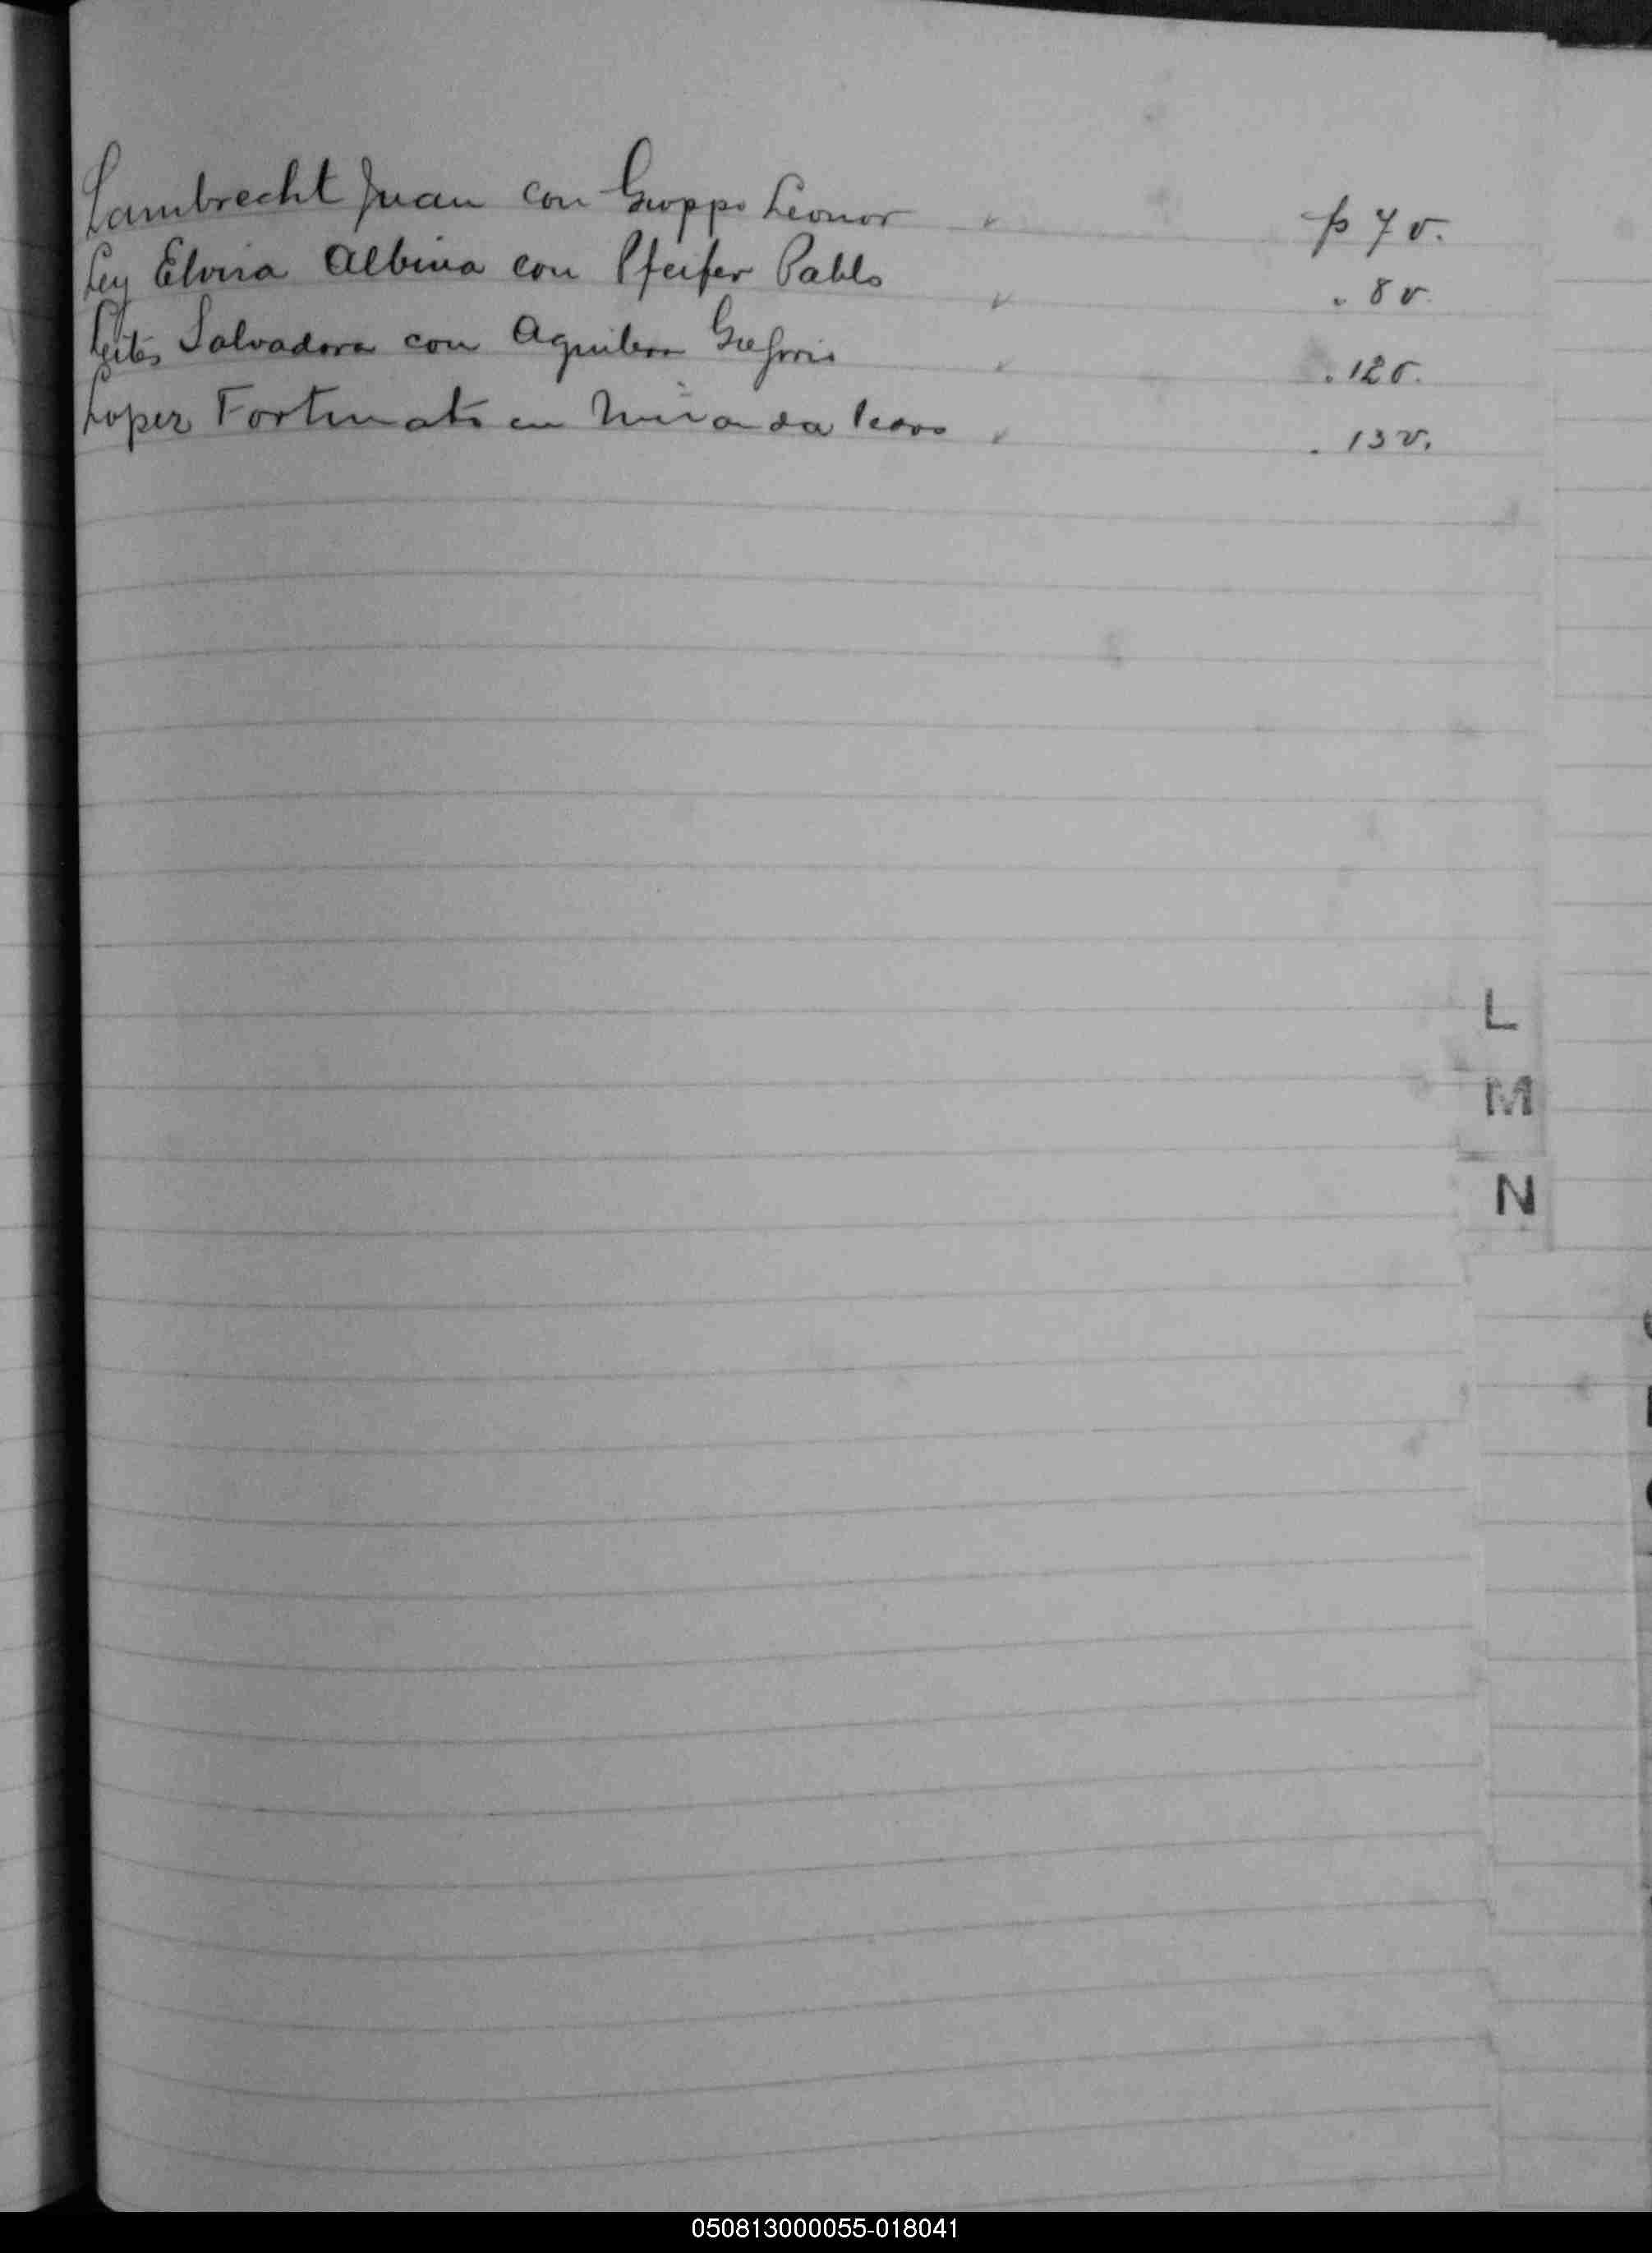 Lambrecht Juan con Groppo Leonor p 7 v.
Ley Elvira Albina con Pfeifer Pablo " 8 v.
Leites Salvadora con Aguilera Gregorio " 12 v.
Lopez Fortunato con Miranda " 13 v.
L
M
N
050813000055-018041